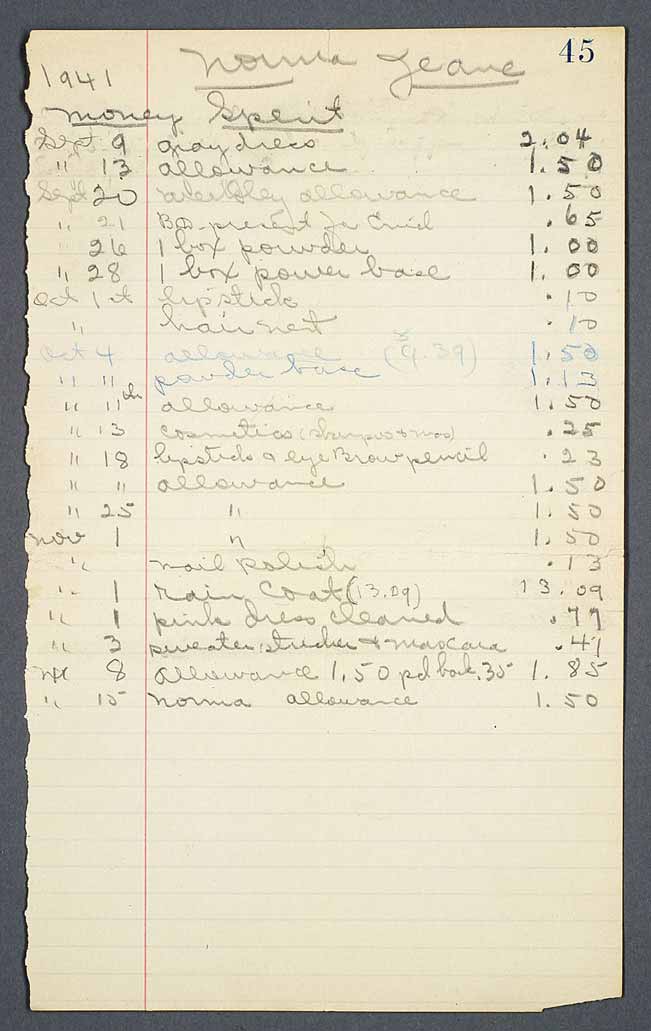 45
1941 Norma Jeane
Money Spent
Sept 9 gray dress 2.04
" 13 allowance 1.50
Sept 20 allowance 1.50
" 21 B.D. present for Enid .65
26 1 box powder 1.00
" 28 1 box power base 1.00
Oct 1st lipstick .10
" hair net .10
Oct 4 allowance (9.39) 1.50
" " powder base 1.13
" 11th allowance 1.50
" 13 cosmetics .25
" 18 lipstick & eye Brow pencil .23
" " allowance 1.50
" 25 " 1.50
Nov 1 " 1.50
" nail polish .13
" 1 rain coat (13.09) 13.09
" 1 pink dress cleaned .79
" 3 sweater & mascara .41
8 allowance 1.50 pd back .35 1.85
" 15 Norma allowance 1.50